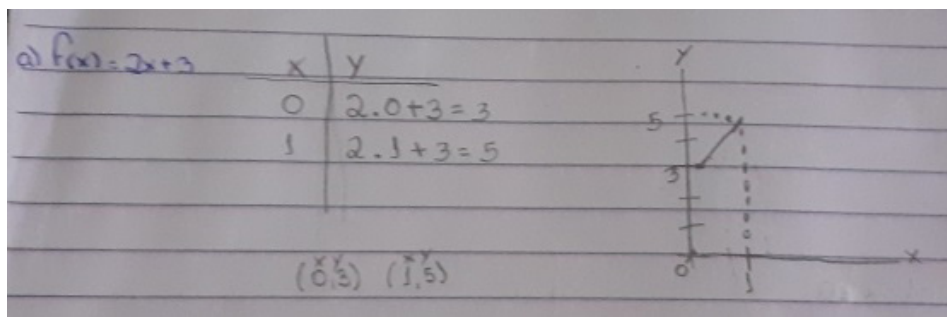 a) f(x) = 2x+3
x y
0 2.0+3=3
1 2.1+3=5
x y x y
(0,3) (1,5)
y
5
3
0
1
x